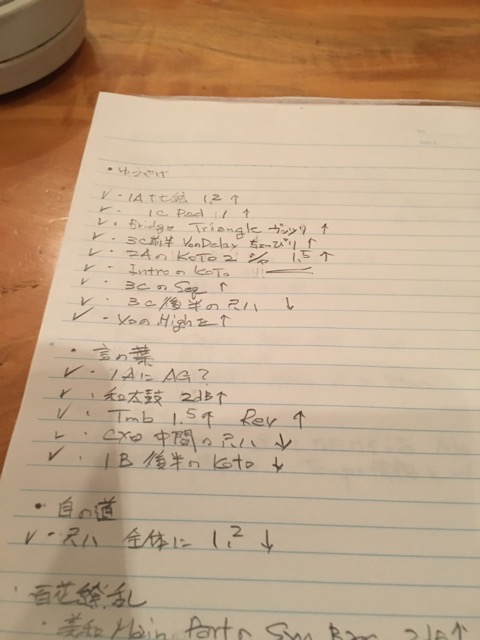 ・ゆうぐれ
✓・1A 十七絃 1,2↑
✓・1C Pad 1↑
✓・Bridge Triangle ガッツリ↑
✓・3C前半 VonDelay ちょっぴり↑
✓・2AのKoTo2 1.5↑
✓・IntroのKoTo
✓・3CのSeq↑
✓・3C後半の尺八 ↓
✓・VoのHighを↑
・言の葉
✓・1AにAG?
✓・和太鼓 2dB↑
✓・Tmb 1.5↑ Rev ↑
✓・中間の尺八 ↓
✓・1B後半のKoto ↓
・自の道
✓・尺八 全体に 1,2↓
・百花繚乱
・美和Main Partの Syn 2dB↑